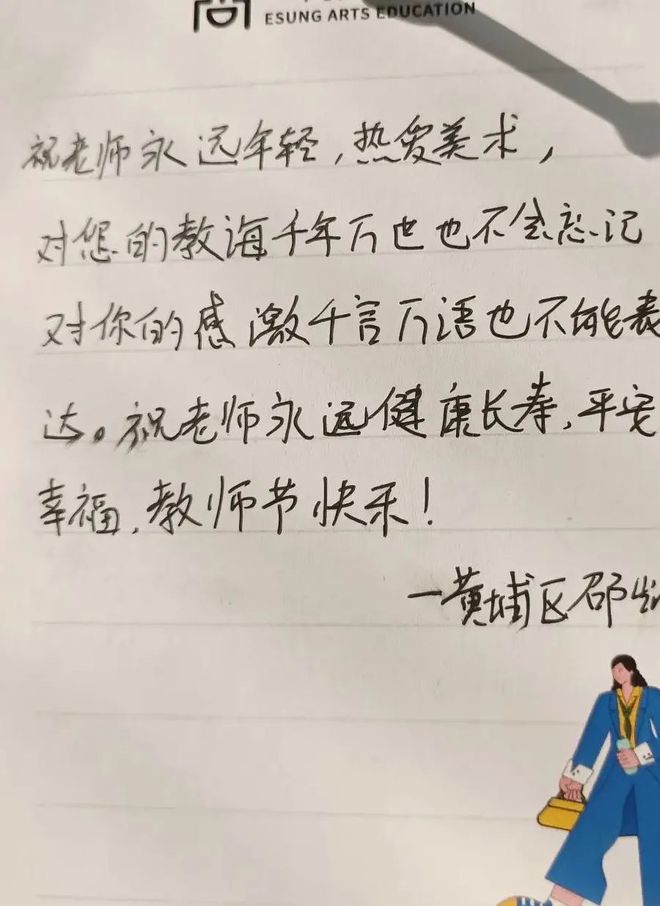 ESUNG ARTS EDUCATION
祝老师永远年轻,热爱美术,
对您的教诲千年万世也不会忘记
对你的感激千言万语也不能表
达。祝老师永远健康长寿,平安
幸福,教师节快乐!
—黄埔区邵